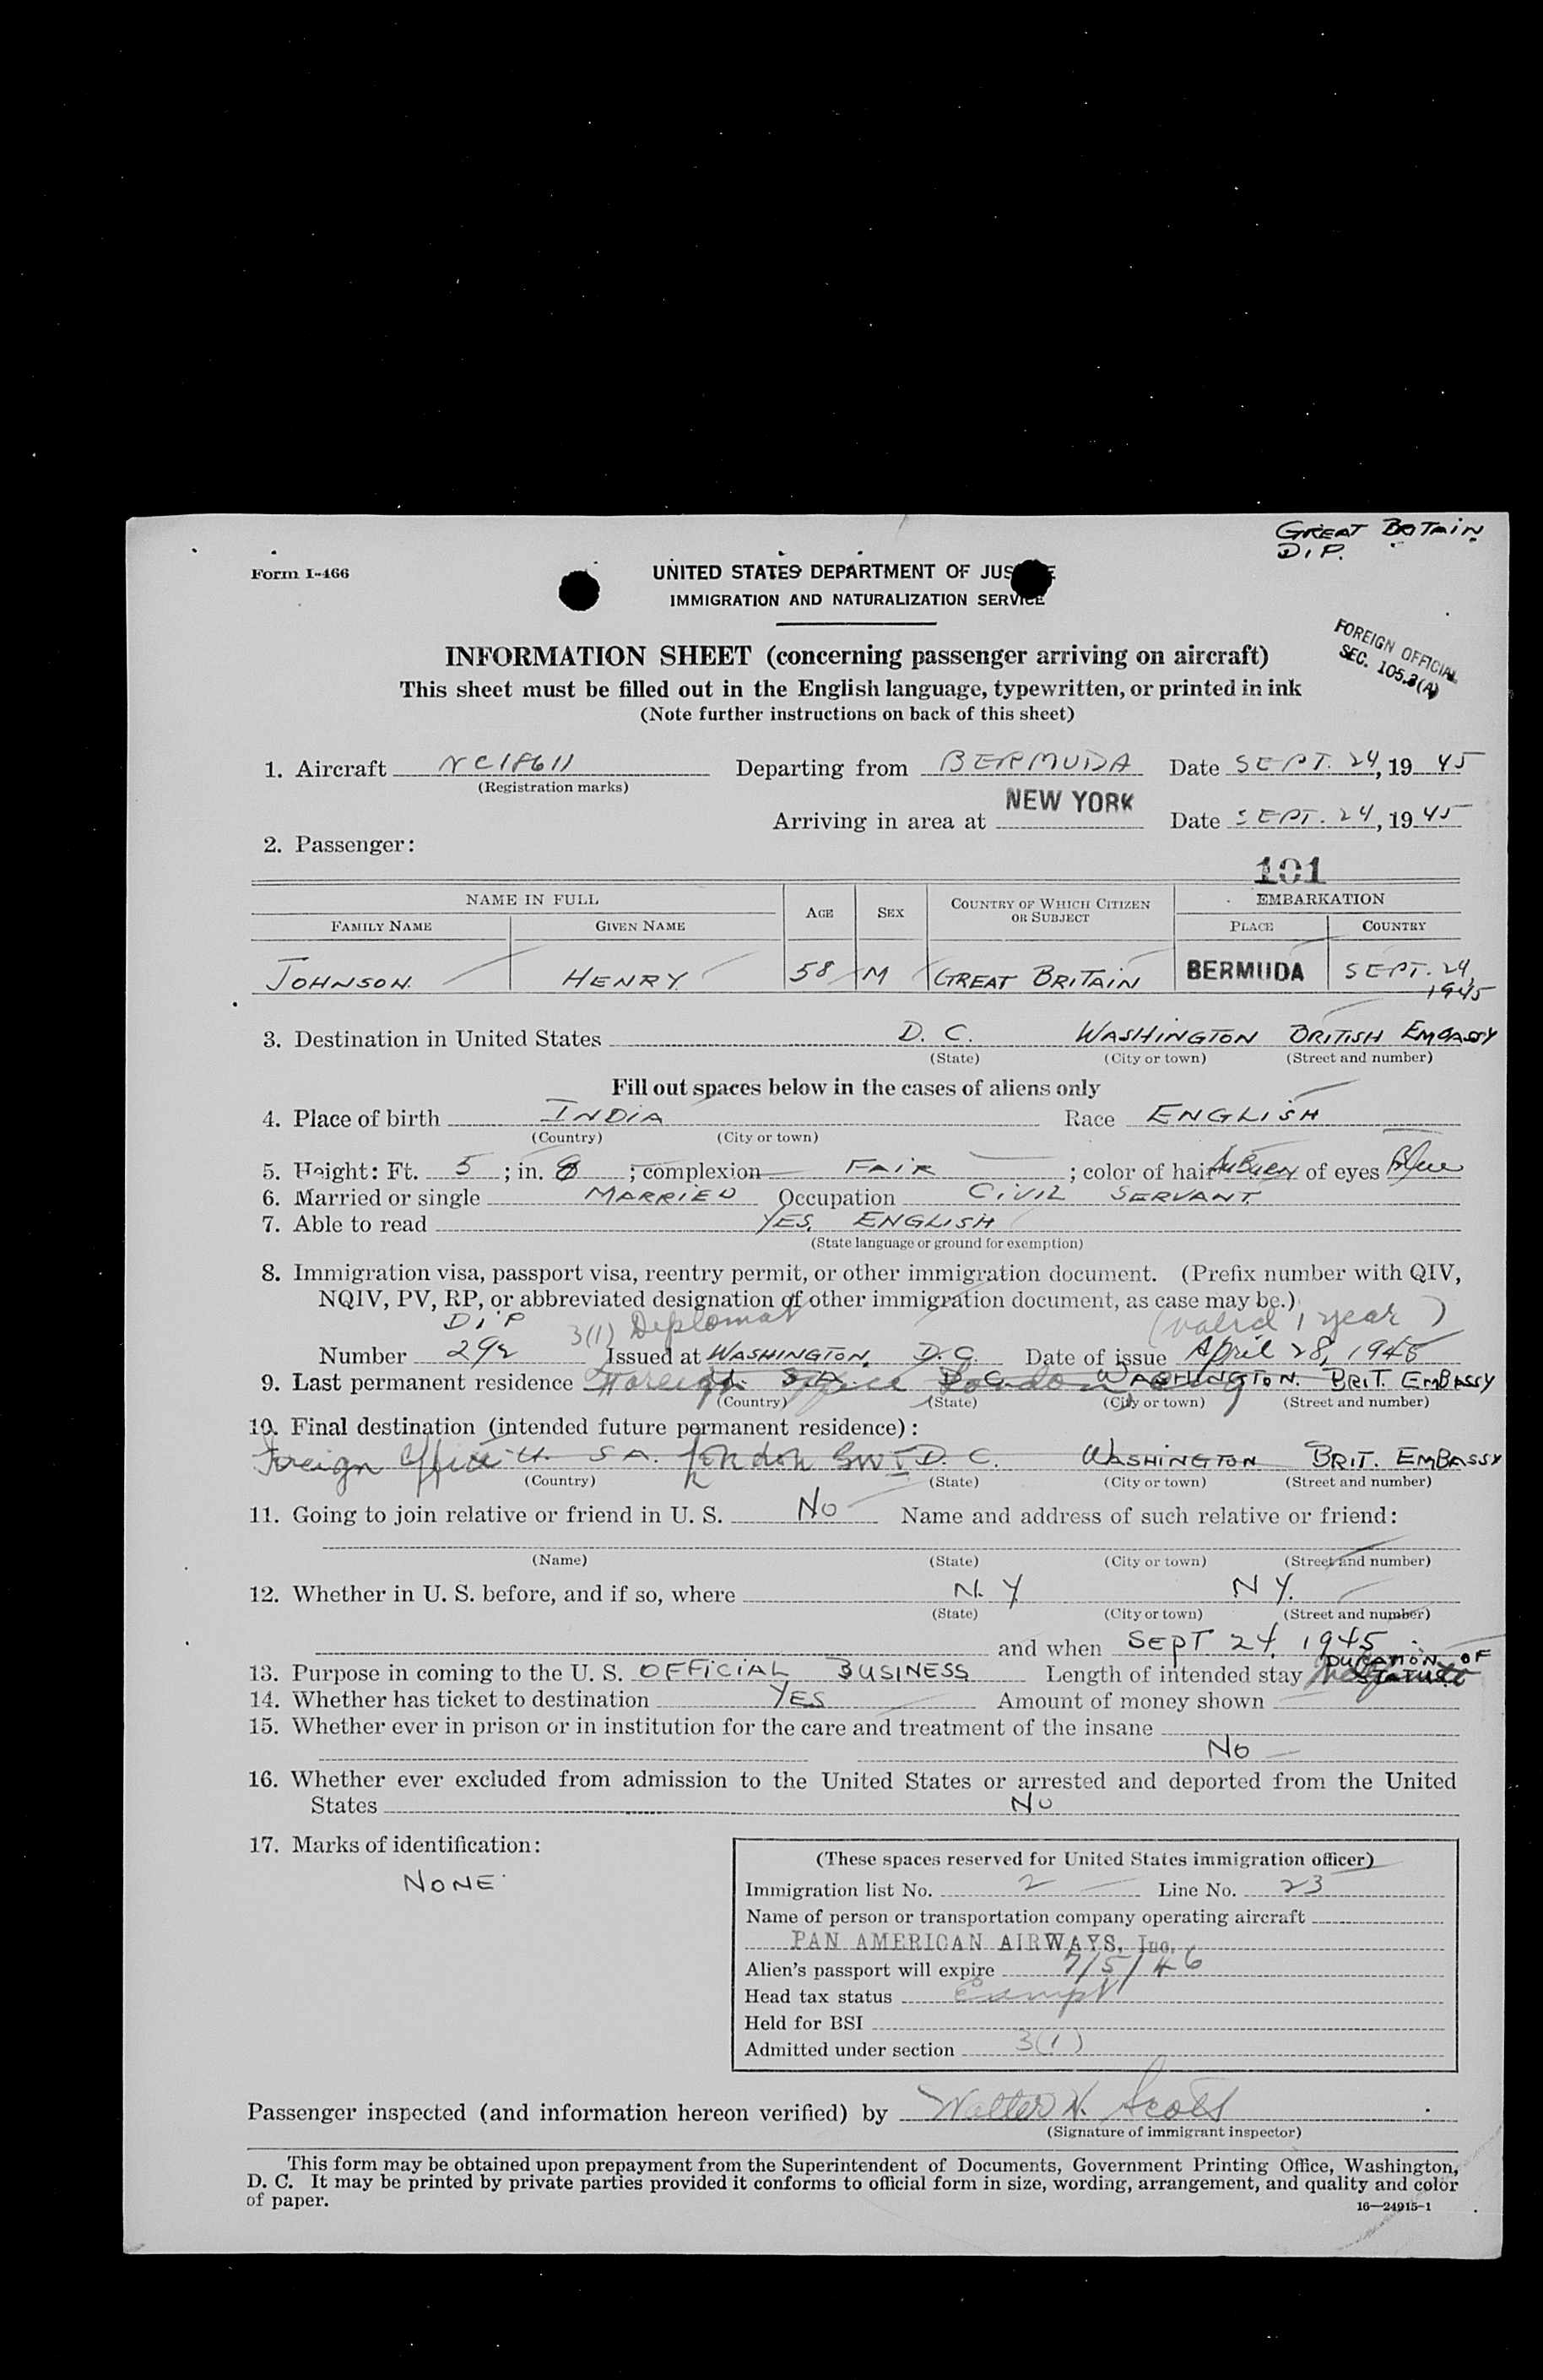 GREAT BRITAIN
DIP.
Form I-466
UNITED STATES DEPARTMENT OF JUS E
IMMIGRATION AND NATURALIZATION SERVICE
FOREIGN OFFICIAL
SEC. 105.3(A)
INFORMATION SHEET (concerning passenger arriving on aircraft)
This sheet must be filled out in the English language, typewritten, or printed in ink
(Note further instructions on back of this sheet)
1. Aircraft NC18611 Departing from BERMUDA Date SEPT. 24, 19 45
(Registration marks)
Arriving in area at NEW YORK Date SEPT. 24, 19 45
2. Passenger:
101
NAME IN FULL AGE SEX COUNTRY OF WHICH CITIZEN OR SUBJECT EMBARKATION
FAMILY NAME GIVEN NAME PLACE COUNTRY
JOHNSON HENRY 58 M GREAT BRITAIN BERMUDA SEPT. 24, 1945
3. Destination in United States D. C. WASHINGTON BRITISH EMBASSY
(State) (City or town) (Street and number)
Fill out spaces below in the cases of aliens only
4. Place of birth INDIA Race ENGLISH
(Country) (City or town)
5. Height: Ft. 5 ; in. 8 ; complexion FAIR ; color of hair AuBurn of eyes Blue
6. Married or single MARRIED Occupation CIVIL SERVANT
7. Able to read YES, ENGLISH
(State language or ground for exemption)
8. Immigration visa, passport visa, reentry permit, or other immigration document. (Prefix number with QIV,
NQIV, PV, RP, or abbreviated designation of other immigration document, as case may be.)
DIP 3(1) Diplomat (valid 1 year)
Number 292 Issued at WASHINGTON, D. C. Date of issue April 28, 1945
9. Last permanent residence Foreign Office London Eng U. S. A. D. C. WASHINGTON. BRIT. EMBASSY
(Country) (State) (City or town) (Street and number)
10. Final destination (intended future permanent residence):
Foreign Office U. S A. London SW1 D. C. WASHINGTON BRIT. EMBASSY
(Country) (State) (City or town) (Street and number)
11. Going to join relative or friend in U. S. No Name and address of such relative or friend:
(Name) (State) (City or town) (Street and number)
12. Whether in U. S. before, and if so, where N. Y. N Y.
(State) (City or town) (Street and number)
and when SEPT 24, 1945
13. Purpose in coming to the U. S. OFFICIAL BUSINESS Length of intended stay DURATION OF STATUS
14. Whether has ticket to destination YES Amount of money shown
15. Whether ever in prison or in institution for the care and treatment of the insane
No
16. Whether ever excluded from admission to the United States or arrested and deported from the United
States No
17. Marks of identification:
NONE
(These spaces reserved for United States immigration officer)
Immigration list No. 2 Line No. 23
Name of person or transportation company operating aircraft
PAN AMERICAN AIRWAYS, Inc.
Alien's passport will expire 7/5/46
Head tax status Exempt
Held for BSI
Admitted under section 3(1)
Passenger inspected (and information hereon verified) by Walter N. Scott
(Signature of immigrant inspector)
This form may be obtained upon prepayment from the Superintendent of Documents, Government Printing Office, Washington,
D. C. It may be printed by private parties provided it conforms to official form in size, wording, arrangement, and quality and color
of paper.
16—24915-1